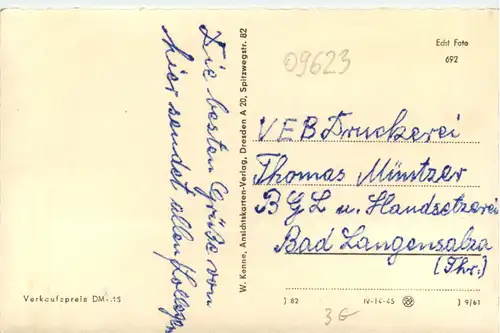 Die besten Grüße von
hier sendet allen Kollegen
W. Kenne, Ansichtskarten-Verlag, Dresden A 20, Spitzwegstr. 82
09623
Echt Foto
692
VEB Druckerei
Thomas Müntzer
BGL u. Handsetzerei
Bad Langensalza
(Thr.)
Verkaufspreis DM -.15
J 82
IV-14-45
J 9/61
3€